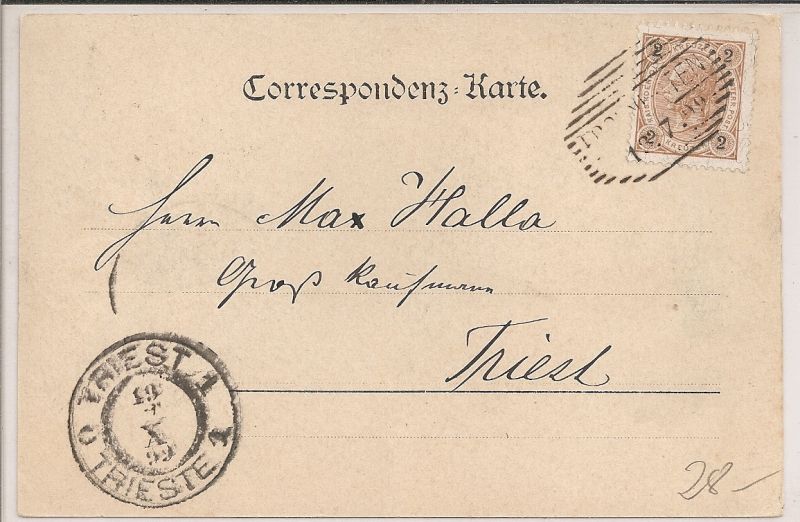 Correspondenz-Karte.
2 2
2 2
Herrn Max Halla
Groß Kaufmann
Triest
TRIEST 1
TRIESTE 1
28-